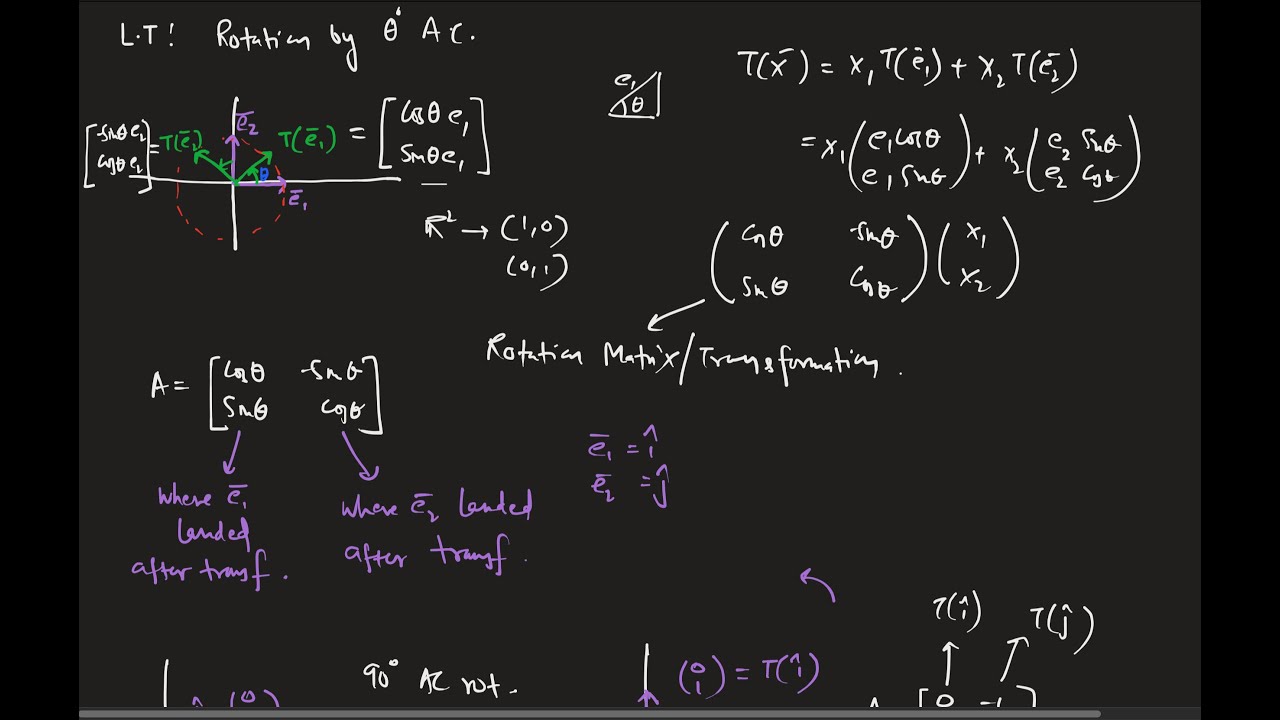 L.T! Rotation by θ° A.C.
[-sinθ e₂
cosθ e₂] = T(ē₂)
ē₂
T(ē₁) = [cosθ e₁
sinθ e₁]
θ
ē₁
ℝ² → (1,0)
(0,1)
e₁
θ
T(x̄) = x₁T(ē₁) + x₂T(ē₂)
= x₁(e₁cosθ
e₁sinθ) + x₂(e₂ sinθ
e₂ cosθ)
(cosθ -sinθ
sinθ cosθ)(x₁
x₂)
Rotation Matrix/Transformation.
A = [cosθ -sinθ
sinθ cosθ]
where ē₁
landed
after transf.
where ē₂ landed
after transf.
ē₁ = î
ē₂ = ĵ
T(î) T(ĵ)
90° AC rot.
(0
1) = T(î)
[0 -1]